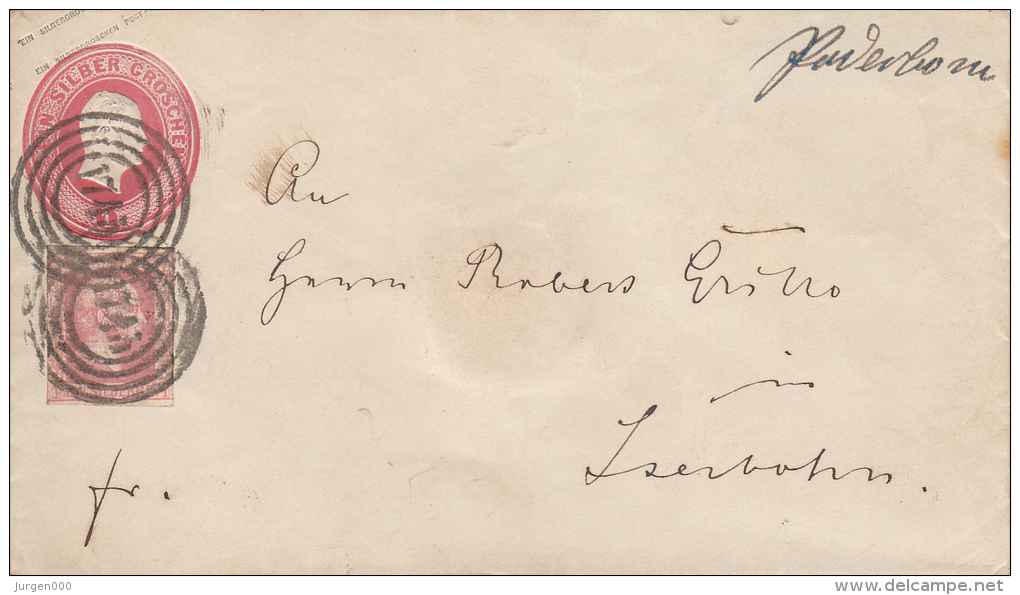 EIN SILBERGRO
EIN SILBERGROSCHEN POST-
EIN SILBER GROSCHEN
Paderborn
An
Herrn Robert
in
Iserlohn.
fr.
jurgen000
delcampe.net